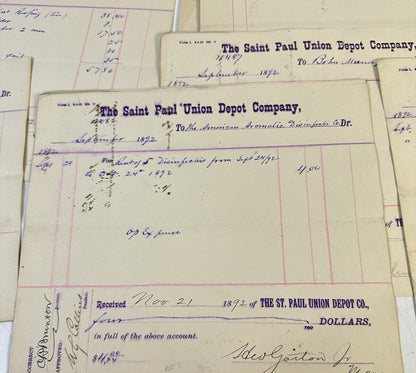 at Roofing (tin) 38.40
8.50
for 2 men 7.50
20
30
25
paid
57.80
Dr.
FORM 1.
The Saint Paul Union Depot Company,
No 487
To Bohn Manu
September 1892
1892
FORM 1.
The Saint Paul Union Depot Company,
No 482
To The American Aromatic Disinfector Co Dr.
September 1892
1892
Sept 24 For Rent of 5 Disinfectors from Sept 24/92
to Oct. 24th 1892 4 00
Op Expense
Received Nov 21 1892 of THE ST. PAUL UNION DEPOT CO.,
four 100 DOLLARS,
in full of the above account.
$4.00
CORRECT
APPROVED
President.
Geo Gaston Jr